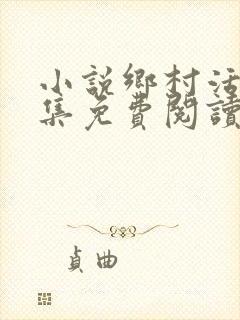 小説鄉村活
集免費閱讀
貞曲